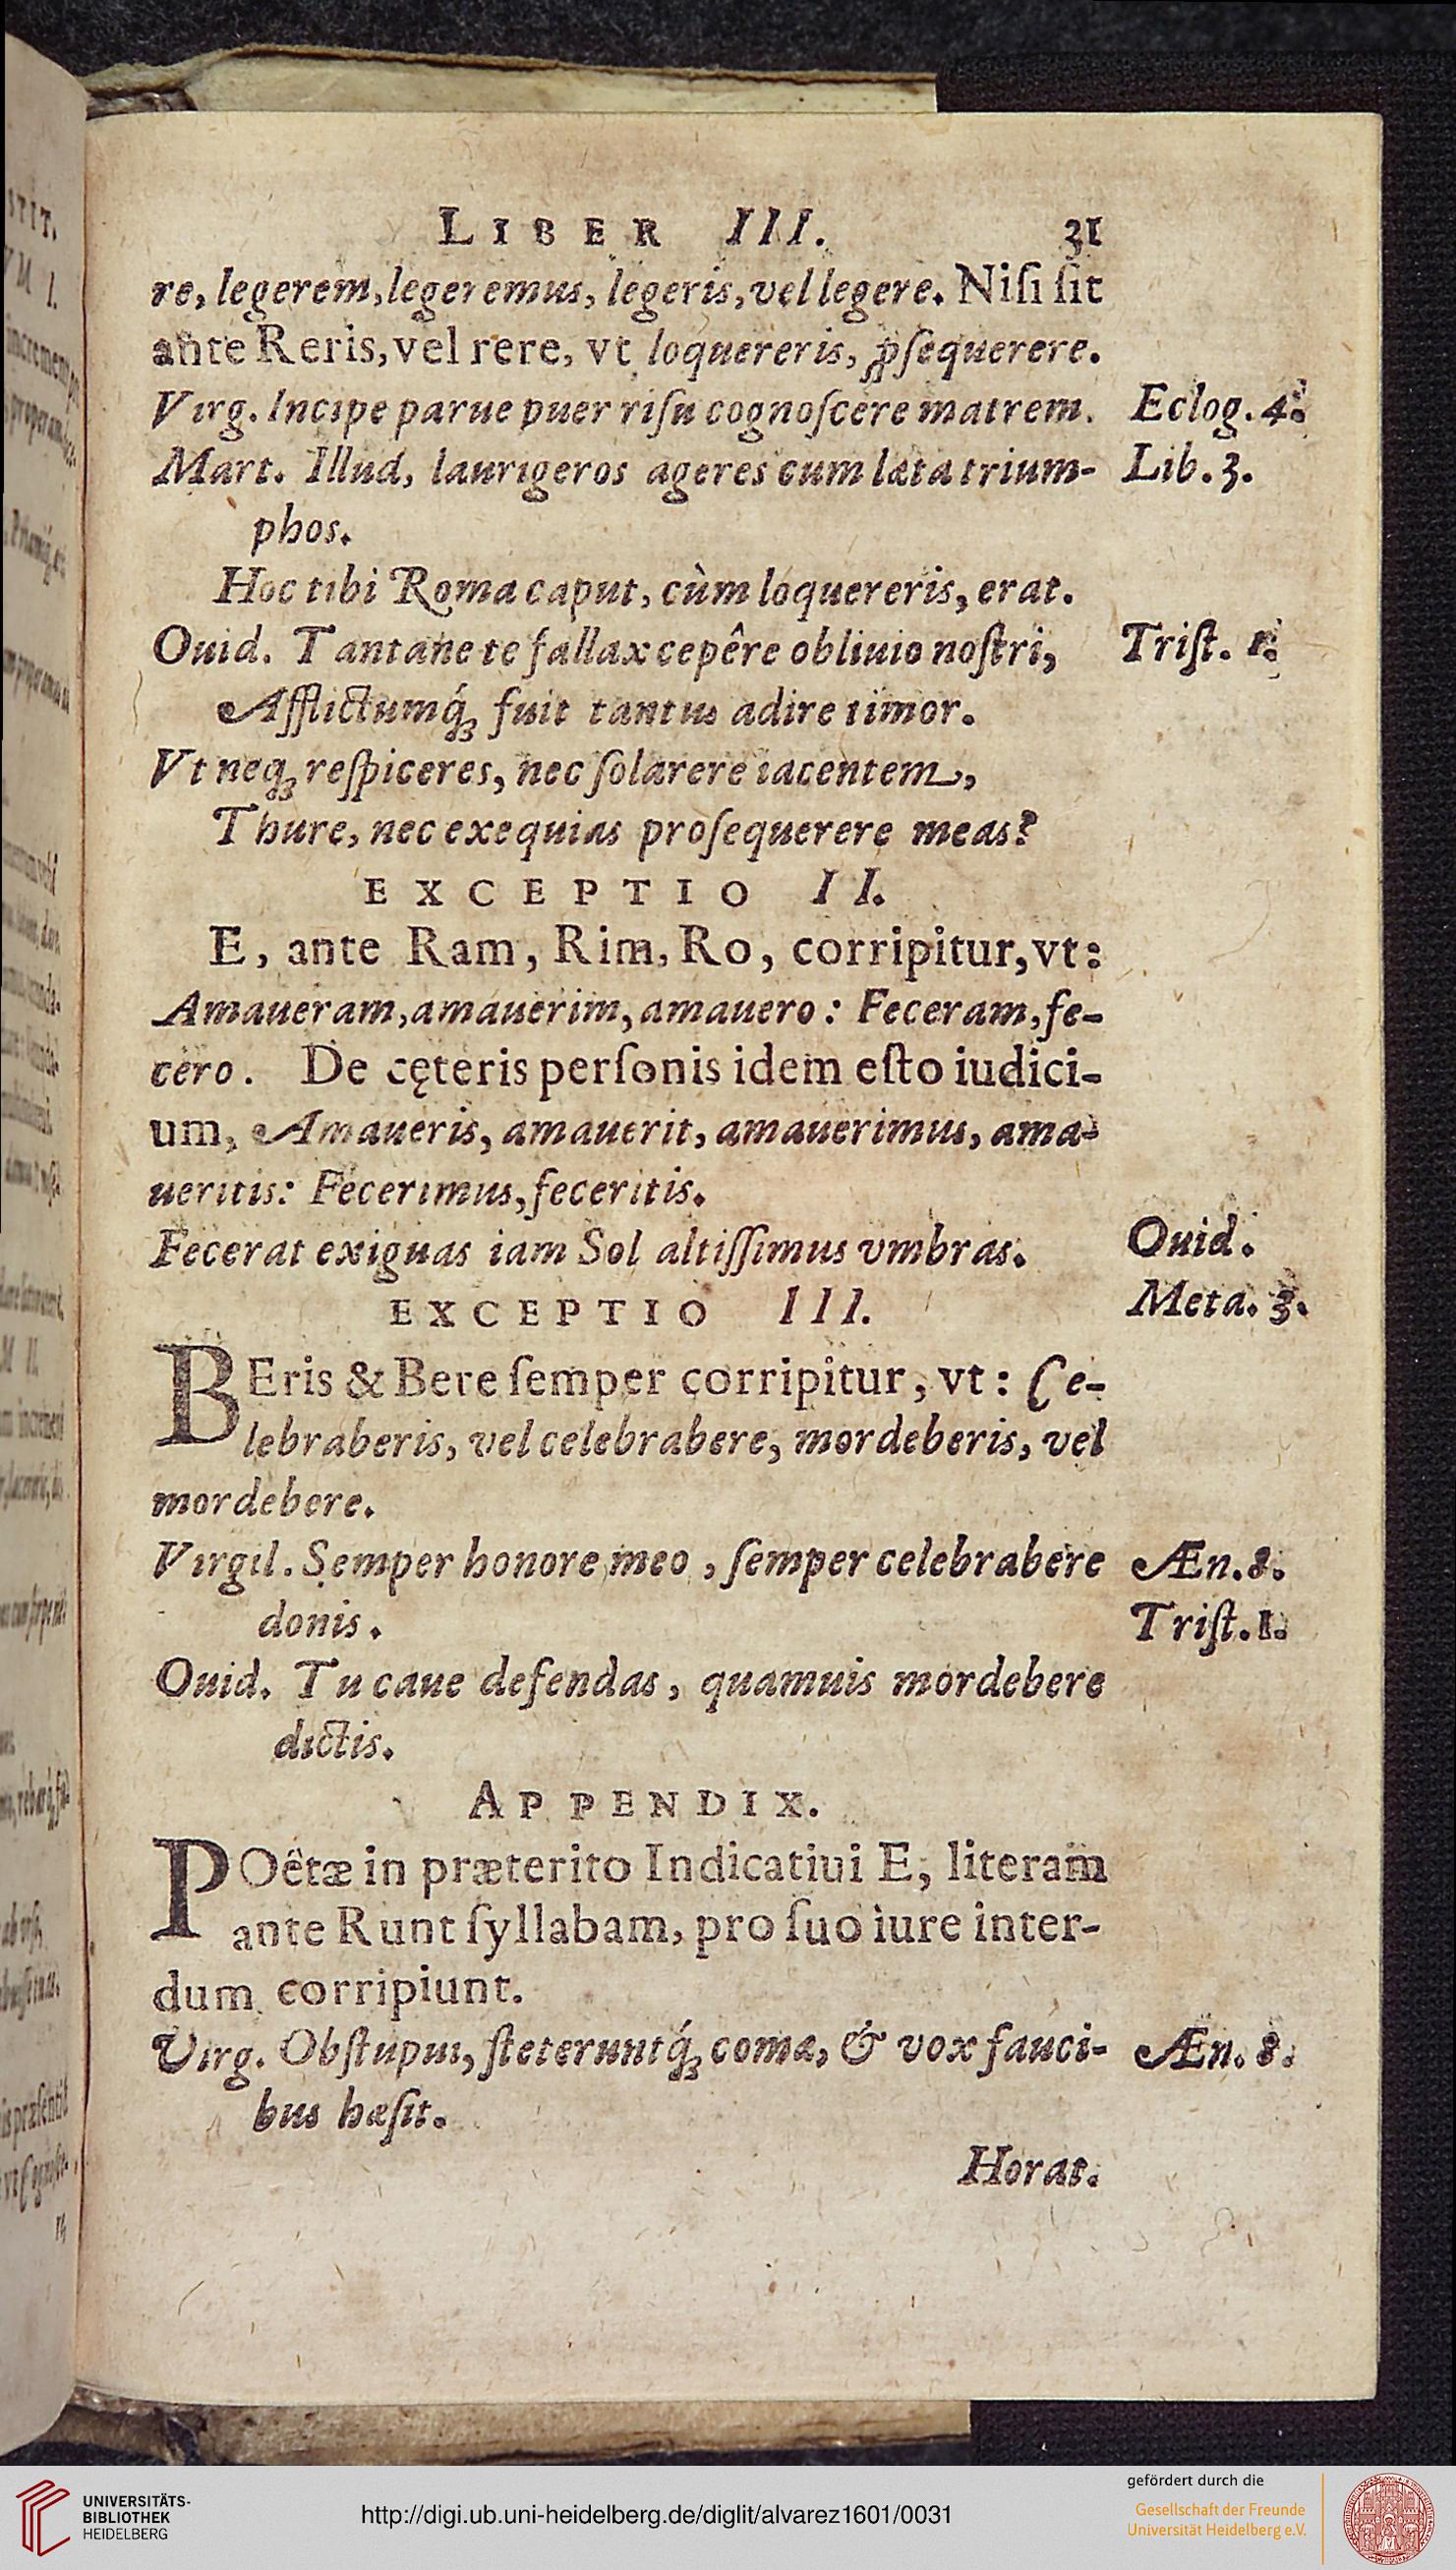 LIBER III. 31
re, legerem, legeremus, legeris, vel legere. Niſi ſit
ante Reris, vel rere, vt loquereris, ꝓſequerere.
Virg. Incipe parue puer riſu cognoſcere matrem. Eclog. 4.
Mart. Illud, laurigeros ageres cum læta trium- Lib. 3.
phos.
Hoc tibi Roma caput, cùm loquereris, erat.
Ouid. Tantane te fallax cepêre obliuio noſtri, Triſt. 1.
Afflictumq́ꝫ fuit tantus adire timor.
Vt neqꝫ reſpiceres, nec ſolarere iacentem,
Thure, nec exequias proſequerere meas?
EXCEPTIO II.
E, ante Ram, Rim, Ro, corripitur, vt:
Amaueram, amauerim, amauero: Feceram, fe-
cero. De cęteris perſonis idem eſto iudici-
um, Amaueris, amauerit, amauerimus, ama-
ueritis: Fecerimus, feceritis.
Fecerat exiguas iam Sol altiſſimus vmbras. Ouid.
EXCEPTIO III. Meta. 3.
BEris & Bere ſemper corripitur, vt: Ce-
lebraberis, vel celebrabere, mordeberis, vel
mordebere.
Virgil. Semper honore meo, ſemper celebrabere Æn. 8.
donis. Triſt. 1.
Ouid. Tu caue defendas, quamuis mordebere
dictis.
APPENDIX.
POëtæ in præterito Indicatiui E, literam
ante Runt ſyllabam, pro ſuo iure inter-
dum corripiunt.
Virg. Obſtupui, ſteteruntq́ꝫ comæ, & vox fauci- Æn. 8.
bus hæſit.
Horat.
UNIVERSITÄTS-
BIBLIOTHEK
HEIDELBERG
http://digi.ub.uni-heidelberg.de/diglit/alvarez1601/0031
gefördert durch die
Gesellschaft der Freunde
Universität Heidelberg e.V.